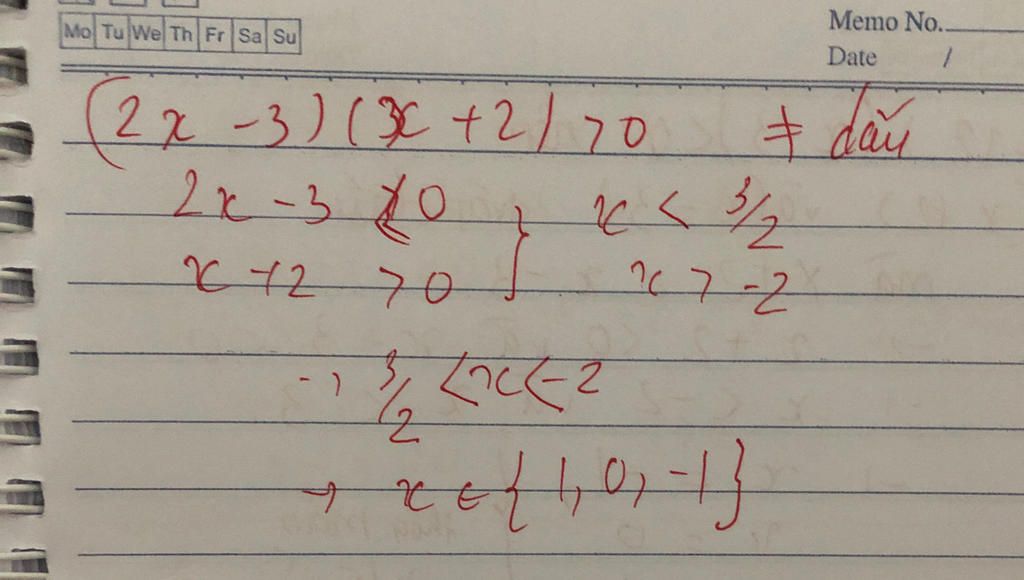 Mo Tu We Th Fr Sa Su
Memo No.
Date /
(2x - 3) (3x + 2) > 0 ≠ dấu
2x - 3 < 0 } x < 3/2
x + 2 > 0 } x > -2
→ 3/2 < x < -2
→ x ∈ {1, 0, -1}